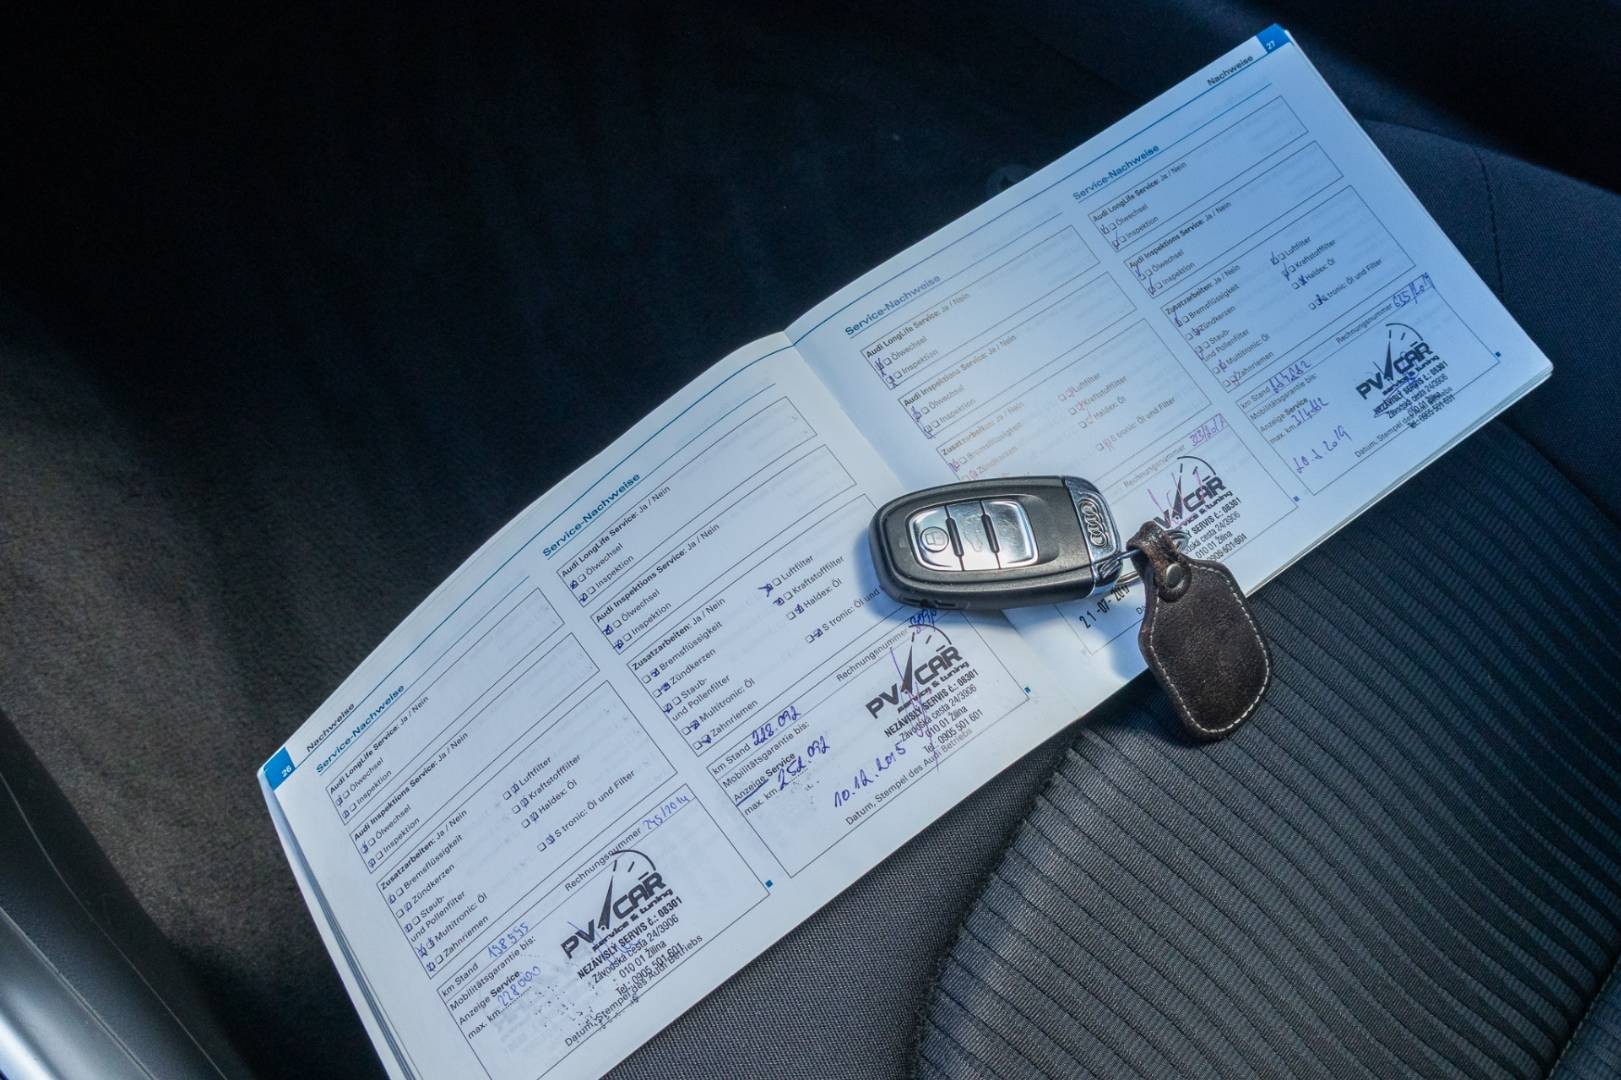 26
Nachweise
Service-Nachweise
Audi LongLife Service: Ja / Nein
Ölwechsel
Inspektion
Audi Inspektions Service: Ja / Nein
Ölwechsel
Inspektion
Zusatzarbeiten: Ja / Nein
Bremsflüssigkeit
Zündkerzen
Staub-
und Pollenfilter
Multitronic: Öl
Zahnriemen
Luftfilter
Kraftstofffilter
Haldex: Öl
S tronic: Öl und Filter
Rechnungsnummer 245/2014
km Stand 198 555
Mobilitätsgarantie bis:
Anzeige Service
max. km 228000
PV CAR
service & tuning
NEZÁVISLÝ SERVIS č.: 08301
Závodská cesta 24/3906
010 01 Žilina
Tel.: 0905 501 601
Datum, Stempel des Audi Betriebs
Service-Nachweise
Audi LongLife Service: Ja / Nein
Ölwechsel
Inspektion
Audi Inspektions Service: Ja / Nein
Ölwechsel
Inspektion
Zusatzarbeiten: Ja / Nein
Bremsflüssigkeit
Zündkerzen
Staub-
und Pollenfilter
Multitronic: Öl
Zahnriemen
Luftfilter
Kraftstofffilter
Haldex: Öl
S tronic: Öl und
Rechnungsnummer
km Stand 228.092
Mobilitätsgarantie bis:
Anzeige Service
max. km 252 092
10.12.2015
PV CAR
service & tuning
NEZÁVISLÝ SERVIS č.: 08301
Závodská cesta 24/3906
010 01 Žilina
Tel.: 0905 501 601
Datum, Stempel des Audi Betriebs
Service-Nachweise
Audi LongLife Service: Ja / Nein
Ölwechsel
Inspektion
Audi Inspektions Service: Ja / Nein
Ölwechsel
Inspektion
Zusatzarbeiten: Ja / Nein
Bremsflüssigkeit
Zündkerzen
Luftfilter
Kraftstofffilter
Haldex: Öl
S tronic: Öl und Filter
Rechnungsnummer
CAR
SERVIS č.: 08301
24/3906
010 01 Žilina
0905 501 601
21 -07-
27
Nachweise
Service-Nachweise
Audi LongLife Service: Ja / Nein
Ölwechsel
Inspektion
Audi Inspektions Service: Ja / Nein
Ölwechsel
Inspektion
Zusatzarbeiten: Ja / Nein
Bremsflüssigkeit
Zündkerzen
Staub-
und Pollenfilter
Multitronic: Öl
Zahnriemen
Luftfilter
Kraftstofffilter
Haldex: Öl
S tronic: Öl und Filter
Rechnungsnummer
km Stand
Mobilitätsgarantie bis:
Anzeige Service
max. km
PV CAR
service & tuning
NEZÁVISLÝ SERVIS č.: 08301
Závodská cesta 24/3906
010 01 Žilina
Tel.: 0905 501 601
Datum, Stempel des Audi Betriebs